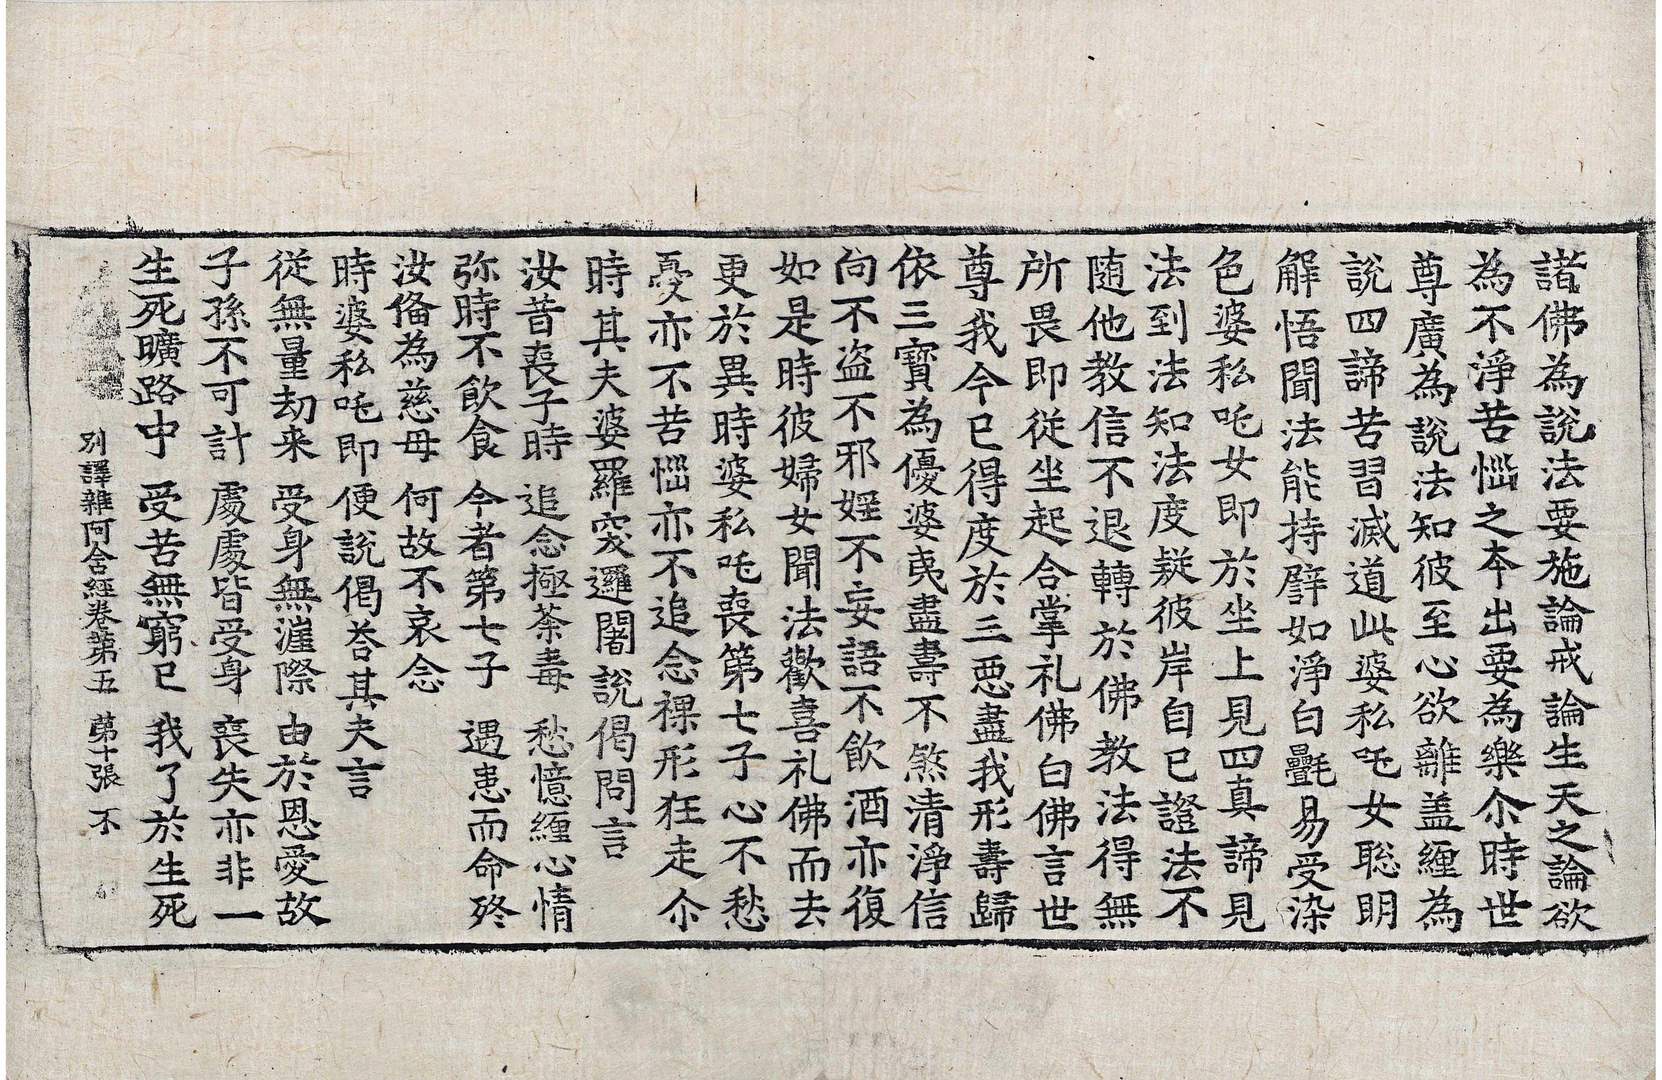 諸佛為說法要施論戒論生天之論欲
為不淨苦惱之本出要為樂尒時世
尊廣為說法知彼至心欲離盖纏為
說四諦苦習滅道此婆私吒女聡明
解悟聞法能持譬如淨白㲲易受染
色婆私吒女即於坐上見四真諦見
法到法知法度疑彼岸自已證法不
随他教信不退轉於佛教法得無
所畏即從坐起合掌礼佛白佛言世
尊我今已得度於三惡盡我形壽歸
依三寶為優婆夷盡壽不煞清淨信
向不盜不邪婬不妄語不飲酒亦復
如是時彼婦女聞法歡喜礼佛而去
更於異時婆私吒喪第七子心不愁
憂亦不苦惱亦不追念裸形狂走尒
時其夫婆羅突邏闍說偈問言
汝昔喪子時　追念極荼毒　愁憶纏心情
弥時不飲食　今者第七子　遇患而命終
汝俻為慈母　何故不哀念
時婆私吒即便說偈荅其夫言
從無量劫来　受身無涯際　由於恩愛故
子孫不可計　處處皆受身　喪失亦非一
生死曠路中　受苦無窮已　我了於生死
別譯雜阿含經卷第五　第十張　不